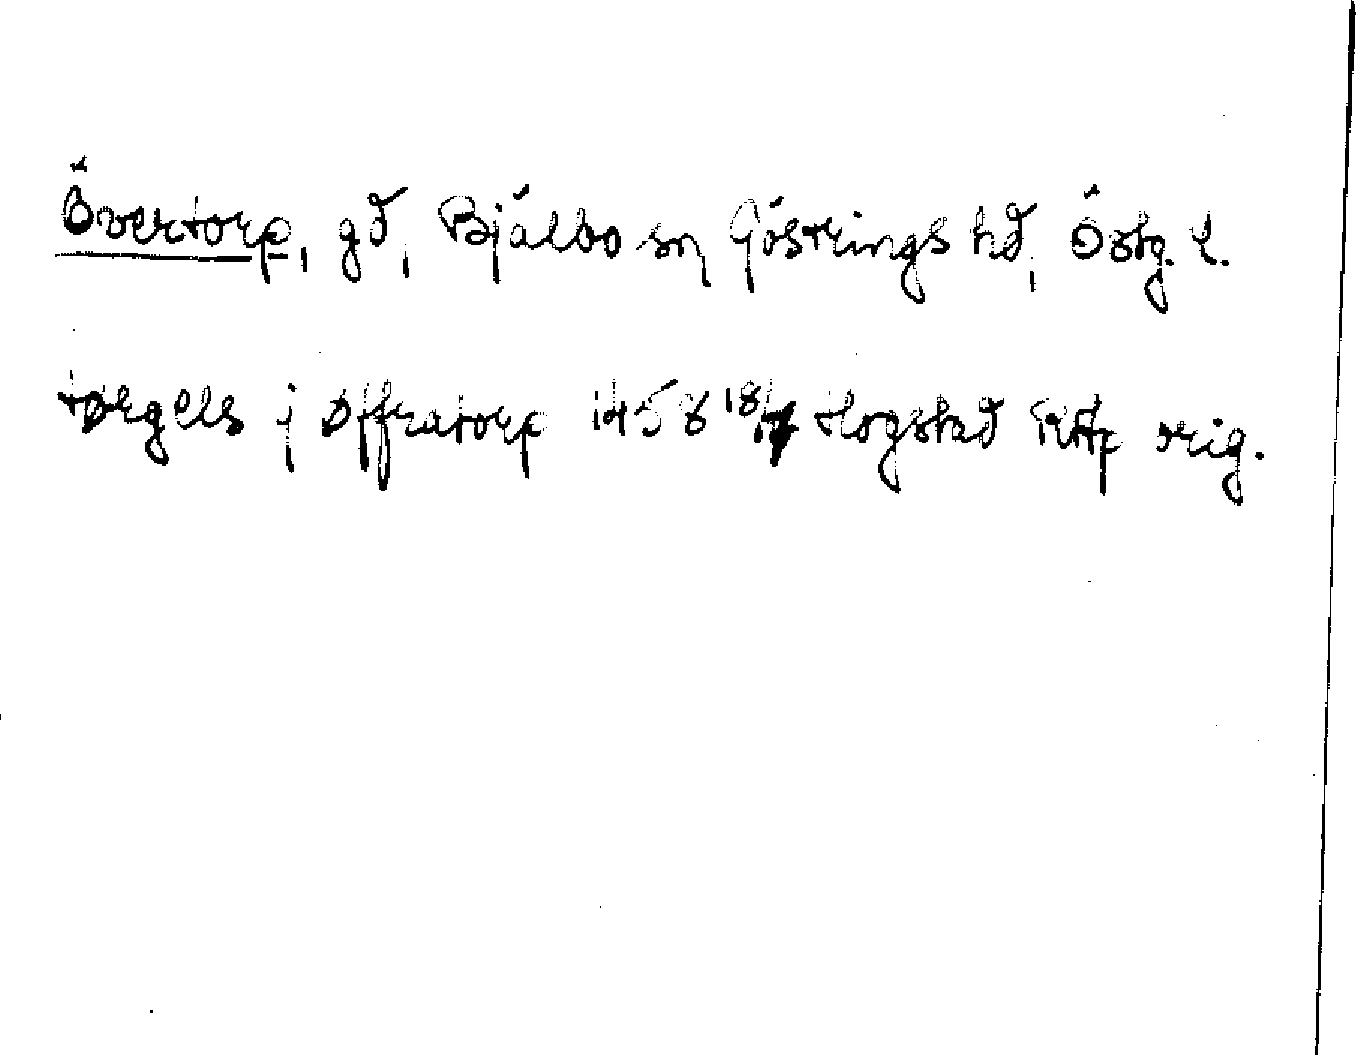 Övertorp, gd, Bjälbo sn Göstrings hd, Östg. l.
tørgels j øffratorp 1458 18/4 Hogstad RAp orig.